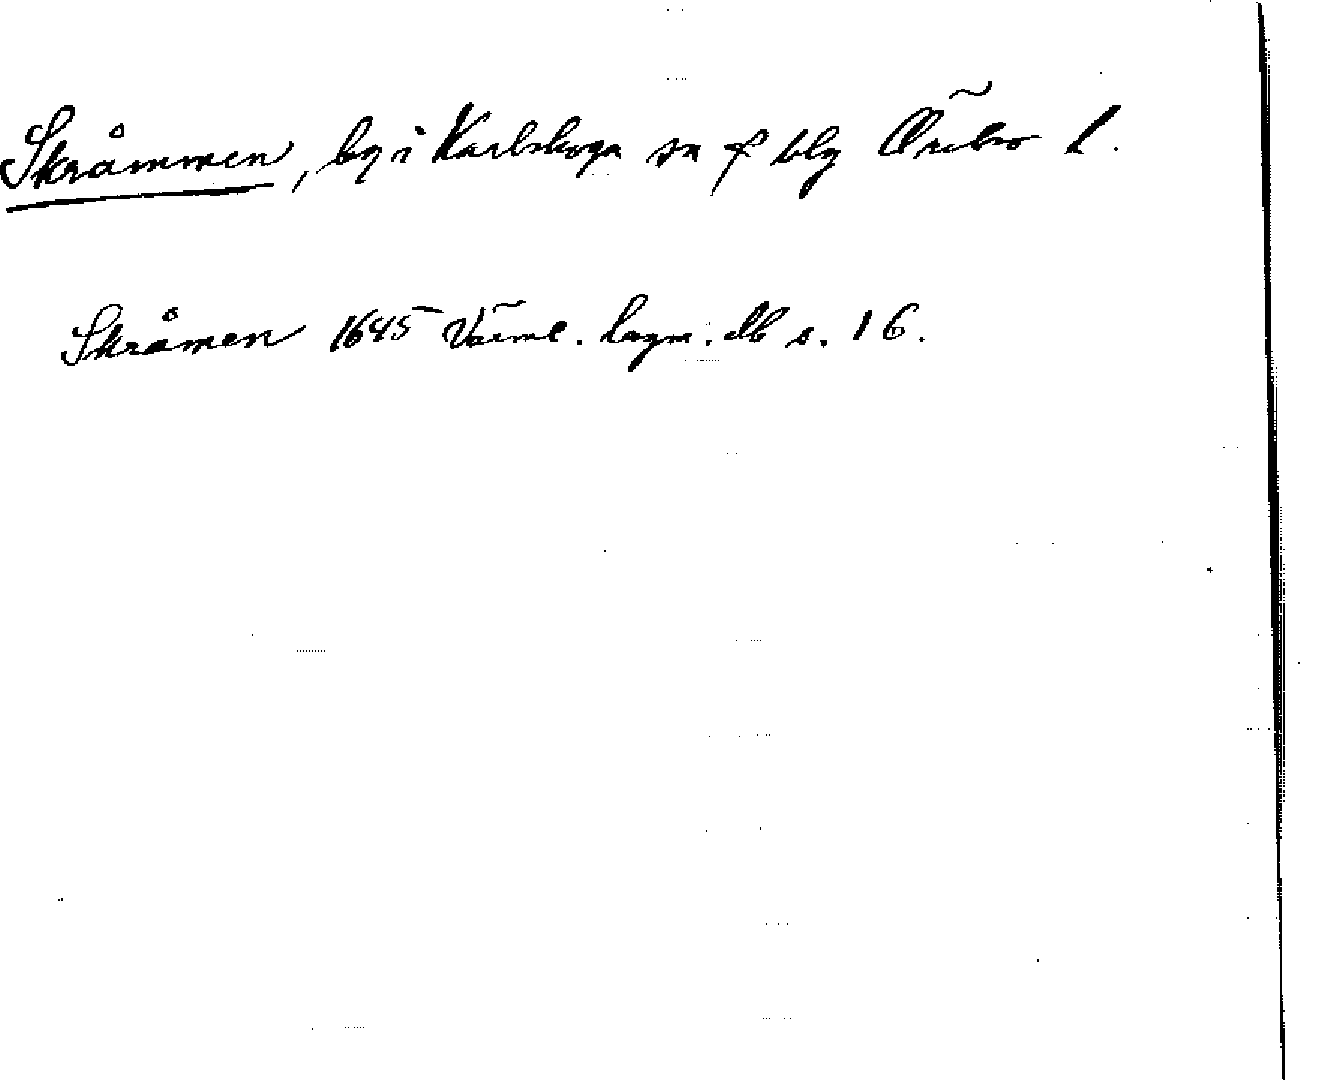 Skråmmen, by i Karlskoga sn o blg Örebro l.
Skråmen 1645 Värml. lagm. db s. 16.